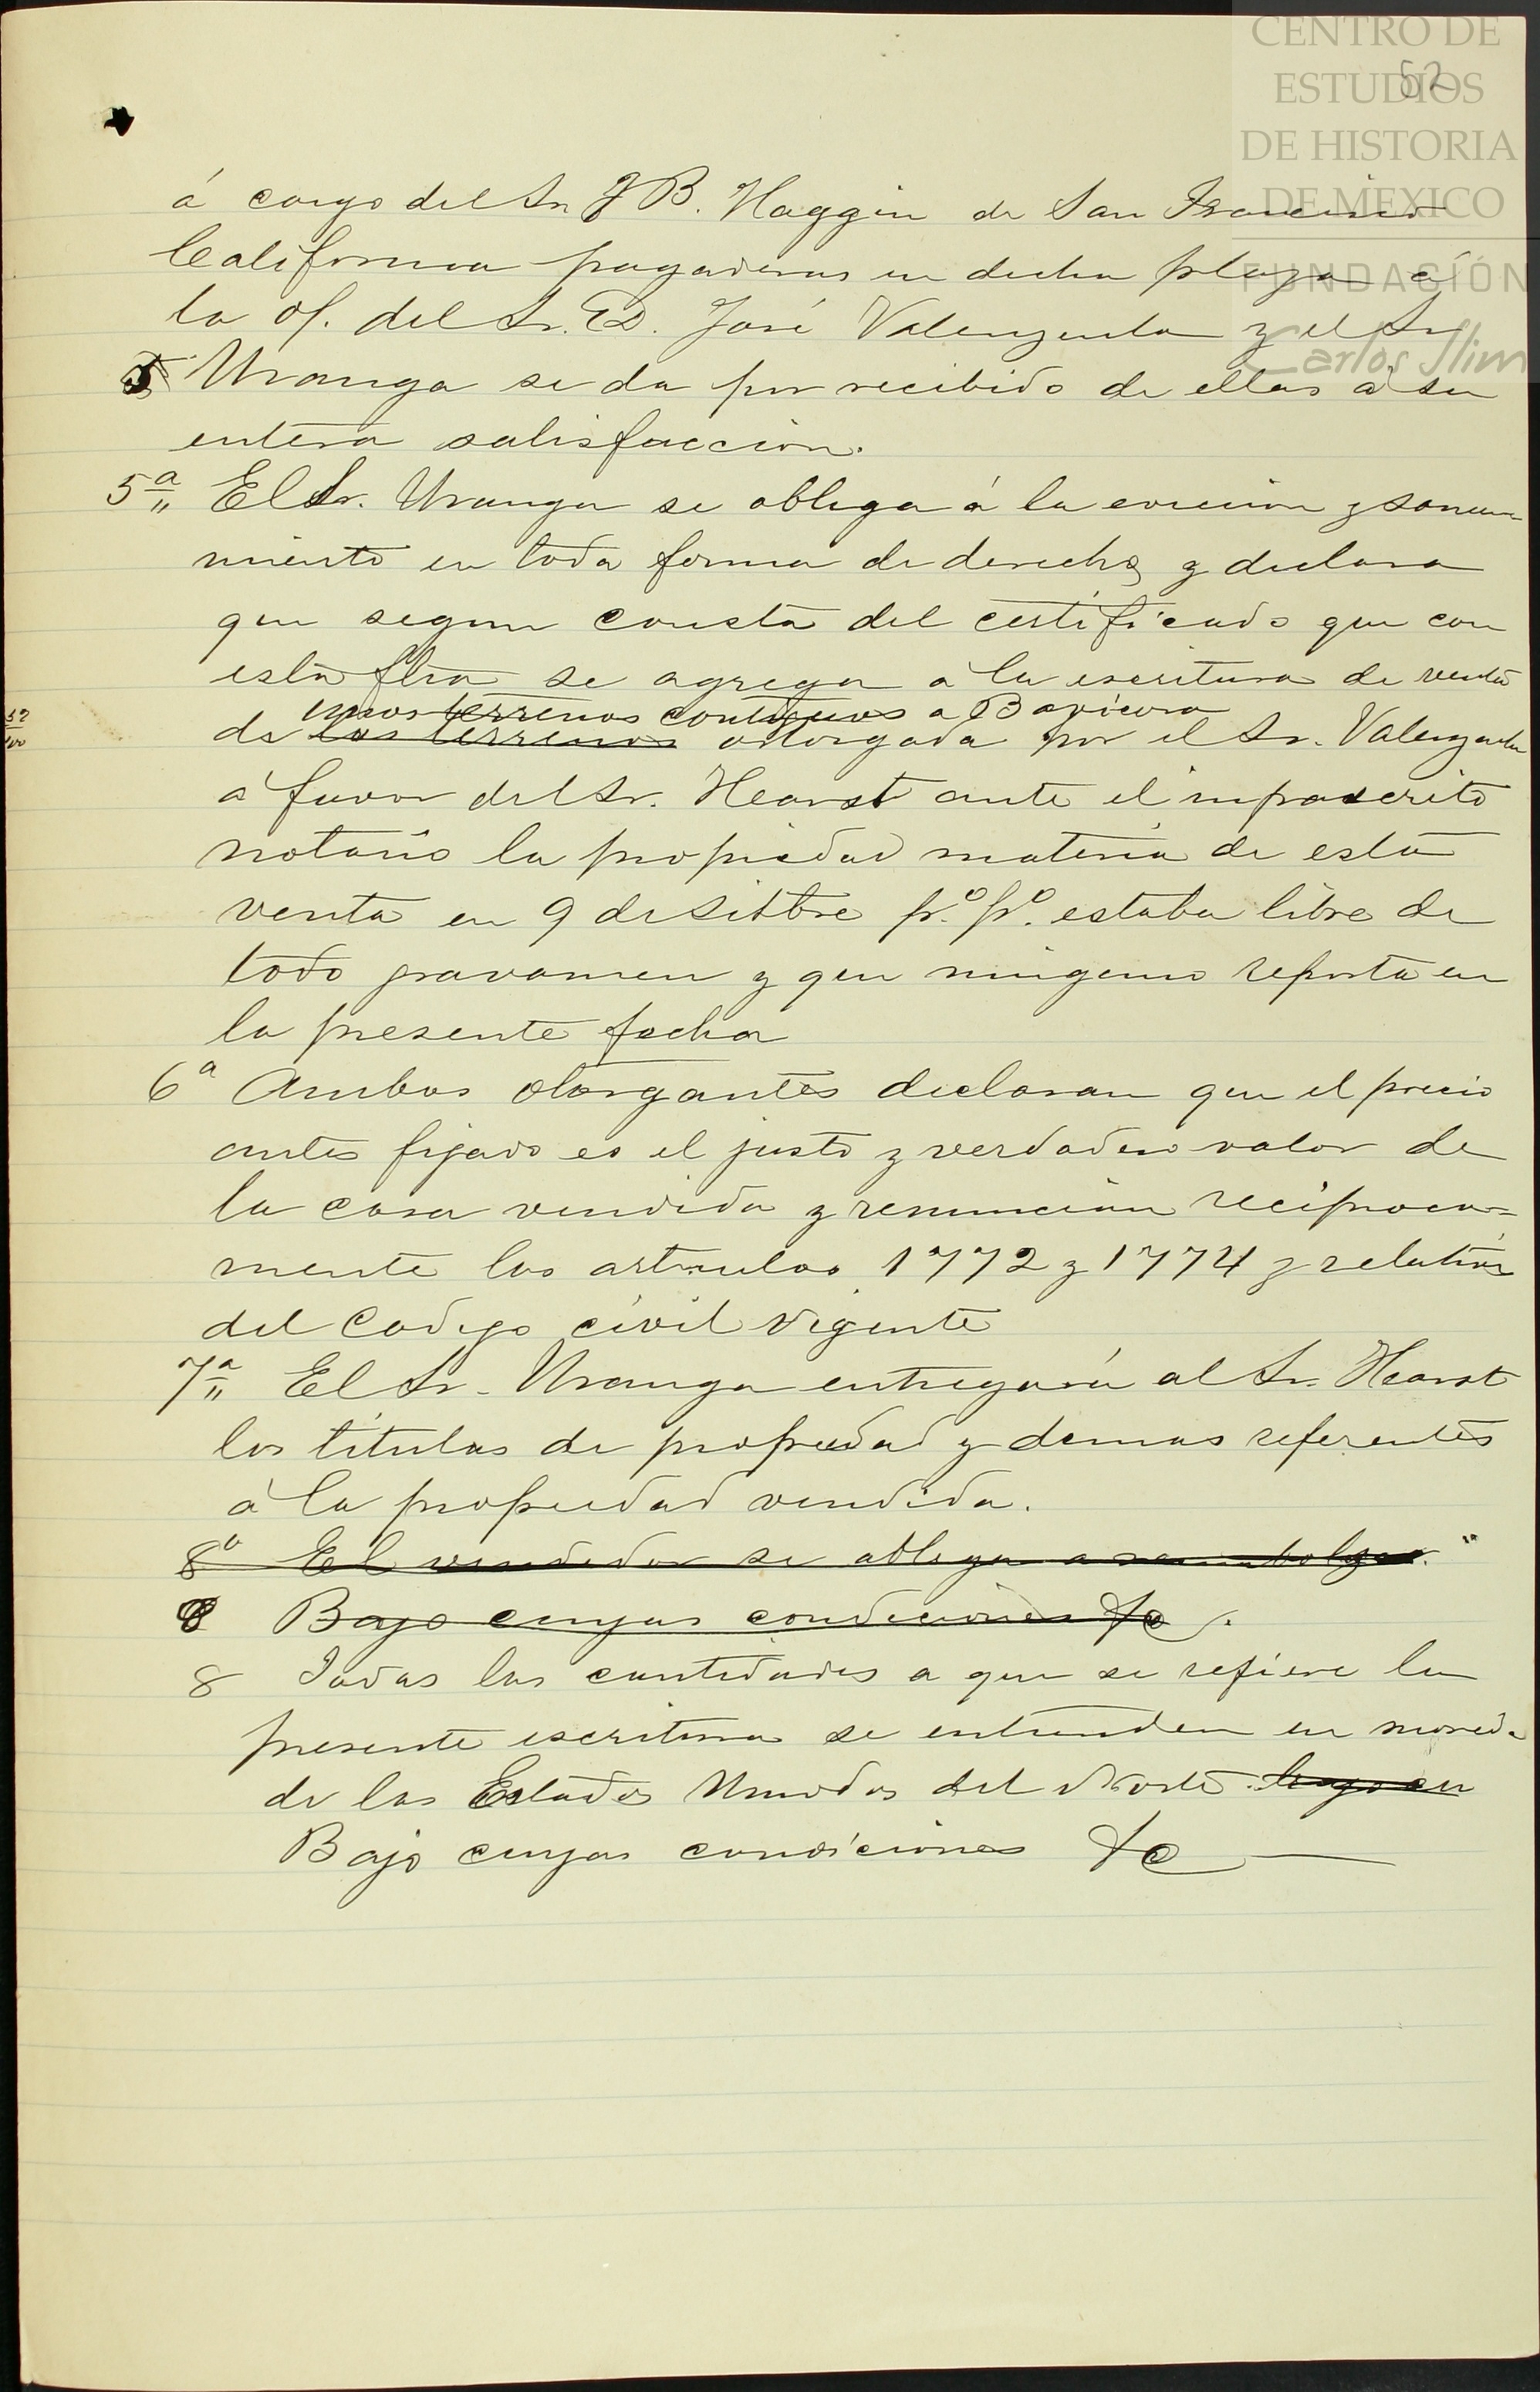 CENTRO DE
ESTUDIOS
52
DE HISTORIA
DE MEXICO
FUNDACIÓN
Carlos Slim
á cargo del Sr. J B. Haggin de San Francisco
California pagaderas en dicha plaza á
la of. del Sr. D. José Valenzuela y el Sr
5 Uranga se da por recibido de ellas á su
entera satisfaccion.
5ª El Sr. Uranga se obliga á la eviccion y sanea
miento en toda forma de derecho y declara
que segun consta del certificado que con
esta fha se agrega á la escritura de venta
unos terrenos contiguos a Bavicora
de los terrenos otorgada por el Sr. Valenzuela
á favor del Sr. Hearst ante el infrascrito
notario la propiedad materia de esta
venta en 9 de Sibtbre p.º p.º estaba libre de
todo gravamen y que ninguno reporta en
la presente fecha
6ª Ambos otorgantes declaran que el precio
antes fijado es el justo y verdadero valor de
la cosa vendida y renuncian reciproca=
mente los articulos 1772 y 1774 y relativos
del Codigo civil vigente
7ª El Sr. Uranga entregará al Sr. Hearst
los titulos de propiedad y demas referentes
á la propiedad vendida.
8ª El vendedor se obliga a
8 Bajo cuyas condiciones &c.
8 Todas las cantidades a que se refiere la
presente escritura se entienden en moneda
de los Estados Unidos del Norte
Bajo cuyas condiciones &c